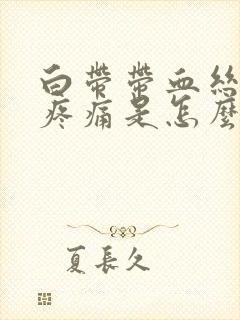 白帶帶血絲
疼痛是怎麼
夏長久